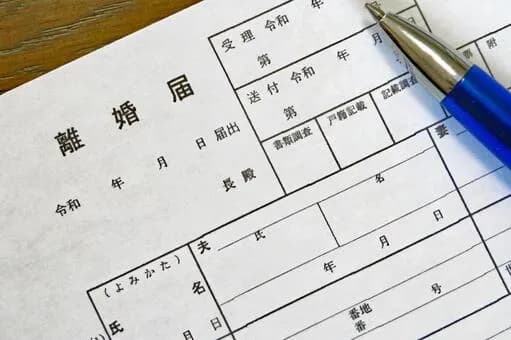 離婚届
令和 年 月 日届出
長殿
受理 令和 年 月
第
送付 令和 年 月
第
書類調査 戸籍記載 記載調査
附
(よみかた)
氏名
夫 氏 名
妻
年 月 日
月 日
番地 号
番
世